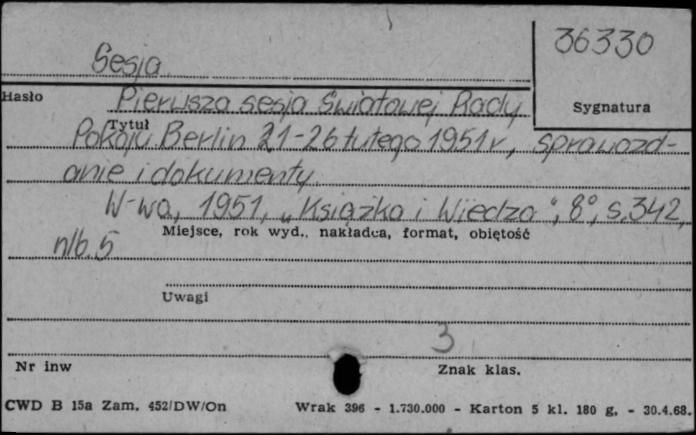 36330
Sesja
Hasło
Pierwsza sesja Światowej Rady
Sygnatura
Tytuł
Pokoju Berlin 21-26 lutego 1951 r., sprawozd-
anie i dokumenty.
W-wa, 1951, „Książka i Wiedza", 8°, s. 342,
Miejsce, rok wyd., nakładca, format, objętość
nlb. 5
Uwagi
3
Nr inw
Znak klas.
CWD B 15a Zam. 452/DW/On Wrak 396 - 1.730.000 - Karton 5 kl. 180 g. - 30.4.68.